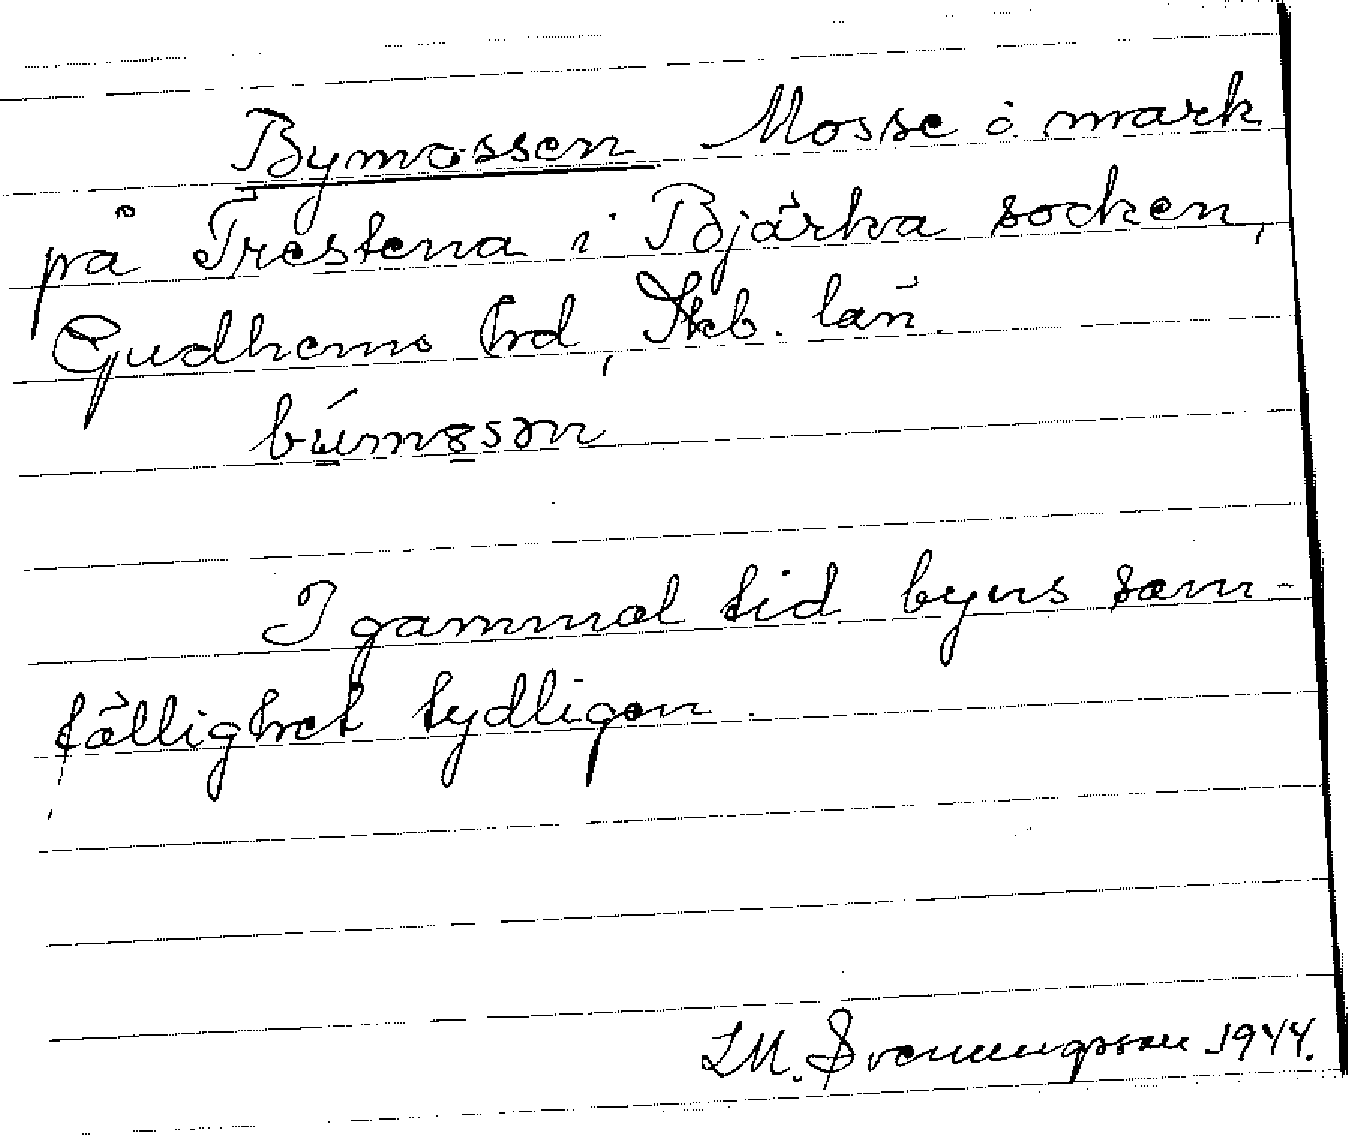 Bymossen Mosse o. mark
på Trestena i Bjärka socken,
Gudhems hrd, Skb. län.
I gammal tid byns sam-
fällighet tydligen.
LM. Svenungsson 1944.